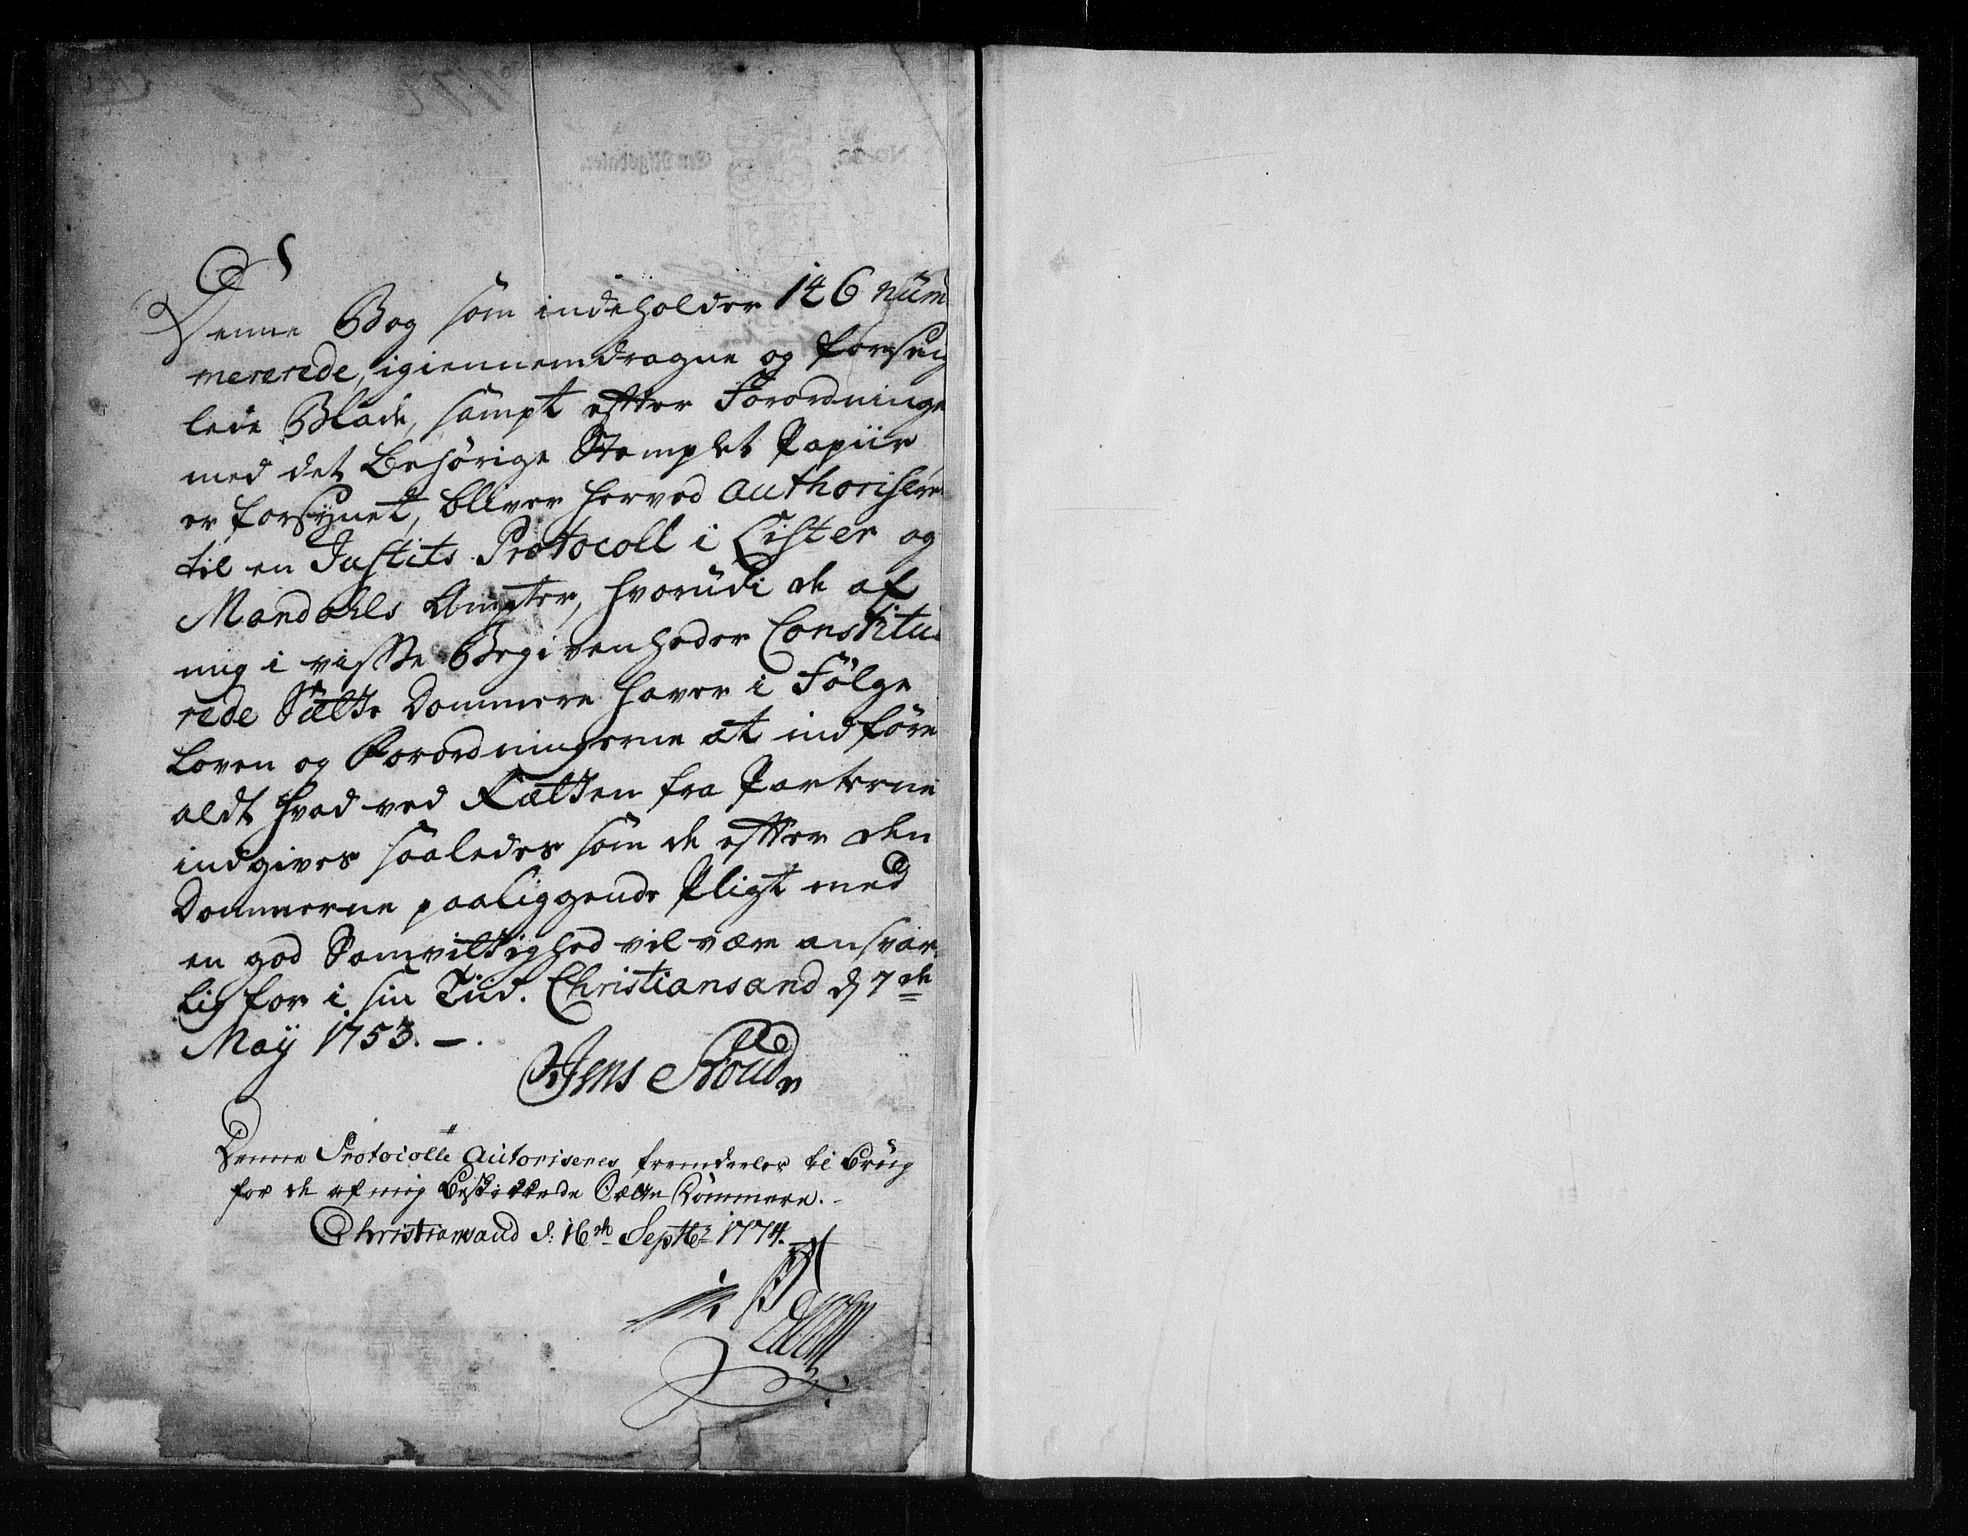 Denne Bog som indeholder 146 num
mererede, igiennemdragne og forseig
lede Blade, sampt efter Forordninge
med det Behørige Stemplet Papiir
er forsynet, bliver herved authorisere
til en Justits Protocoll i Lister og
Mandahls Ampter, hvorudi de af
mig i visse Begivenheder Constitue
rede Sætte Dommere haver i Følge
Loven og Forordningerne at indføre
aldt hvad ved Rætten fra Parterne
indgives saaledes som de efter den
Dommerne paaliggende Pligt med
en god Samvittighed vil være ansvar
lig for i sin Tiid. Christiansand d 7de
May 1753. —.
Jens
Denne Protocolle Autoriseres fremdeeles til Brug
for de af mig Beskikkede Sætte Dommere.
Christiansand d: 16de Septbr 1774.